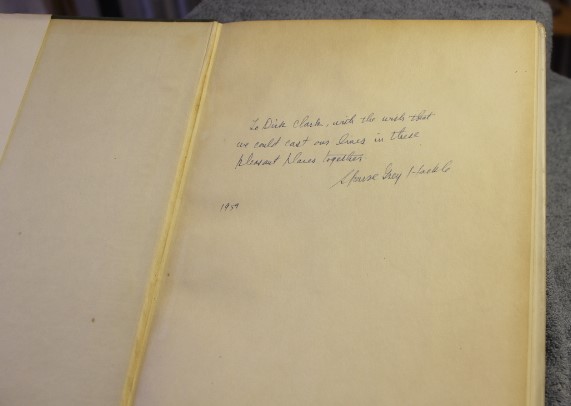 To Dick Clark, with the wish that
we could cast our lines in these
pleasant places together
Sparse Grey Hackle
1959